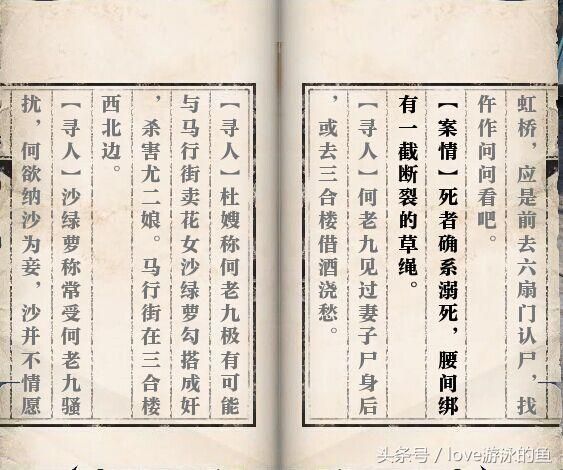 虹桥，应是前去六扇门认尸，找
仵作问问看吧。
【案情】死者确系溺死，腰间绑
有一截断裂的草绳。
【寻人】何老九见过妻子尸身后
，或去三合楼借酒浇愁。
【寻人】杜嫂称何老九极有可能
与马行街卖花女沙绿萝勾搭成奸
，杀害尤二娘。马行街在三合楼
西北边。
【寻人】沙绿萝称常受何老九骚
扰，何欲纳沙为妾，沙并不情愿
头条号 / love游泳的鱼